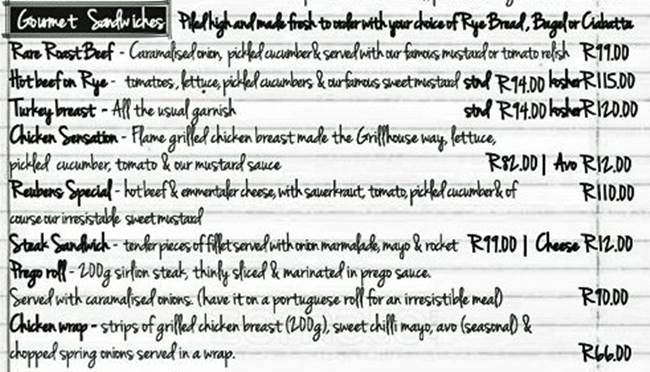 Gourmet Sandwiches Piled high and made fresh to order with your choice of Rye Bread, Bagel or Ciabatta
Rare Roast Beef - Caramalised onion, pickled cucumber & served with our famous mustard or tomato relish R99.00
Hot beef on Rye - tomatoes, lettuce, pickled cucumbers & our famous sweet mustard stnd R94.00 kosher R115.00
Turkey breast - All the usual garnish stnd R94.00 kosher R120.00
Chicken Sensation - Flame grilled chicken breast made the Grillhouse way, lettuce,
pickled cucumber, tomato & our mustard sauce R82.00 | Avo R12.00
Reubens Special - hot beef & emmentaler cheese, with sauerkraut, tomato, pickled cucumber & of R110.00
course our irresistable sweet mustard
Steak Sandwich - tender pieces of fillet served with onion marmalade, mayo & rocket R99.00 | Cheese R12.00
Prego roll - 200g sirlion steak, thinly sliced & marinated in prego sauce.
Served with caramalised onions. (have it on a portuguese roll for an irresistible meal) R90.00
Chicken wrap - strips of grilled chicken breast (200g), sweet chilli mayo, avo (seasonal) &
chopped spring onions served in a wrap. R66.00